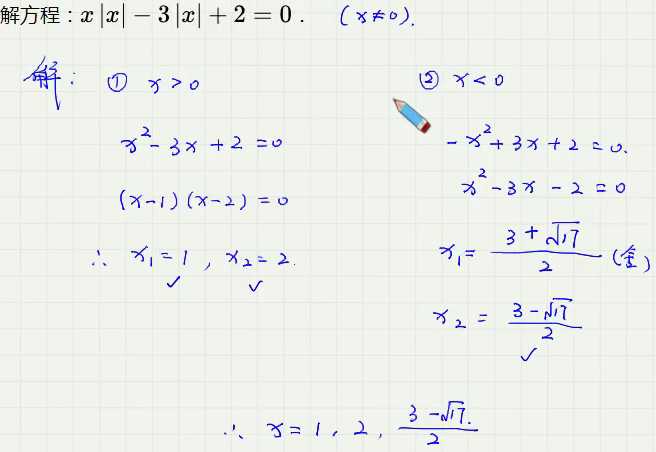 解方程：x|x|-3|x|+2=0． (x≠0).
解： ① x>0
x²-3x+2=0
(x-1)(x-2)=0
∴ x₁=1 , x₂=2.
✓ ✓
② x<0
-x²+3x+2=0.
x²-3x-2=0
x₁= (3+√17)/2 (舍)
x₂= (3-√17)/2
✓
∴ x=1, 2, (3-√17)/2.